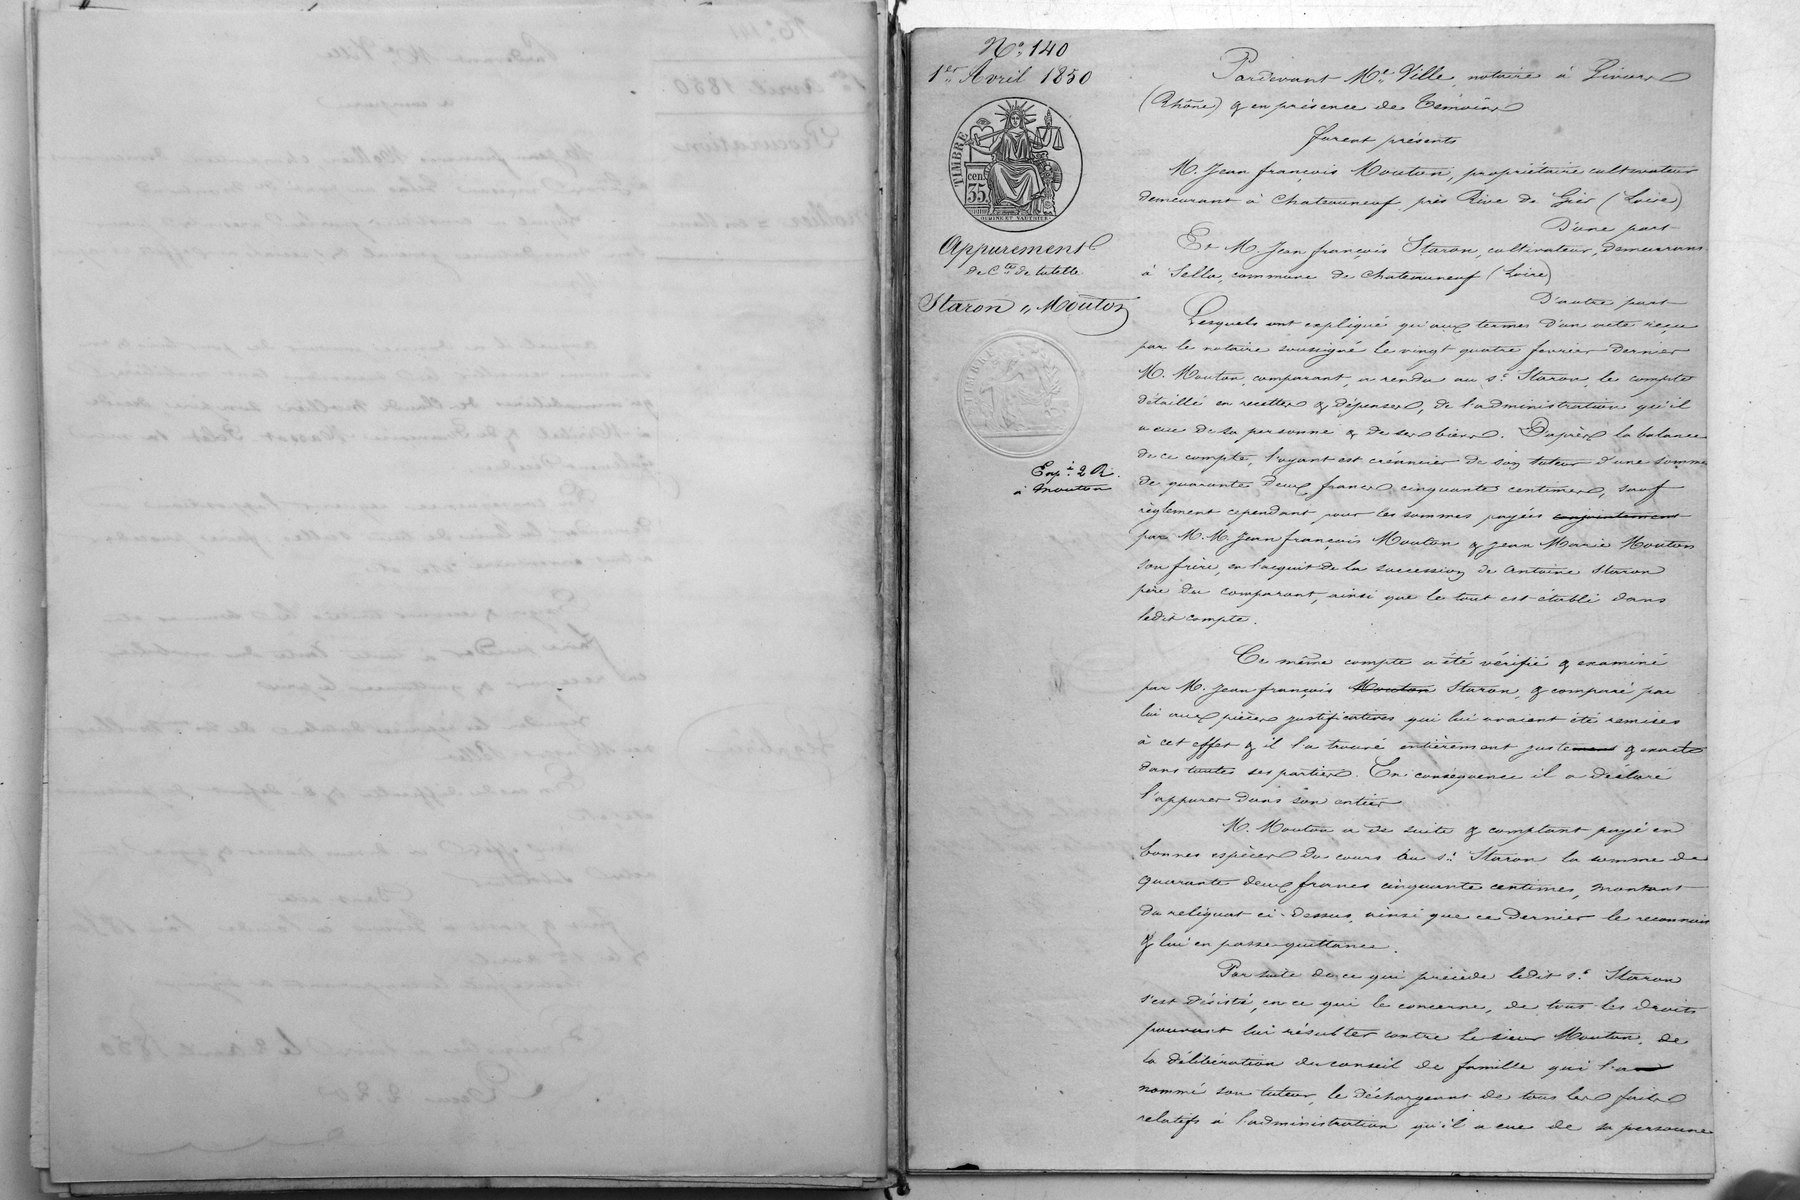 N.° 140
1.er Avril 1850
TIMBRE
cen.
35.
Appurement
de C.te de tutelle
Staron & Mouton
TIMBRE
à Mouton
Pardevant M.e Ville, notaire à Givors
(Rhône) & en présence de témoins
furent présents
M. Jean françois Mouton, propriétaire cultivateur
demeurant à Chateauneuf près Rive de Gier (Loire)
D'une part
Et M. Jean françois Staron, cultivateur, demeurant
à Sella, commune de Chateauneuf (Loire)
D'autre part
Lesquels ont expliqué qu'aux termes d'un acte reçu
par le notaire soussigné le vingt quatre fevrier dernier
M. Mouton, comparant, a rendu au s.r Staron, le compte
détaillé en recettes & dépenses, de l'administration qu'il
a eue de sa personne & de ses biens. D'après la balance
de ce compte, l'oyant est créancier de son tuteur d'une somme
de quarante deux francs cinquante centimes, sauf
règlement cependant pour les sommes payées conjointement
par M.M. Jean françois Mouton & Jean Marie Mouton
son frère, en l'acquit de la succession de Antoine Staron
père du comparant, ainsi que le tout est établi dans
ledit compte.
Ce même compte a été vérifié & examiné
par M. Jean françois Mouton Staron, & comparé par
lui aux pièces justificatives qui lui avaient été remises
à cet effet & il l'a trouvé entièrement justement & exacte
dans toutes ses parties. En conséquence il a déclaré
l'appurer dans son entier
M. Mouton a de suite & comptant payé en
bonnes espèces du cours au s.r Staron la somme de
quarante deux francs cinquante centimes, montant
du reliquat ci-dessus, ainsi que ce dernier le reconnait
& lui en passe quittance.
Par suite de ce qui précède ledit s.r Staron
s'est désisté, en ce qui le concerne, de tous les droits
pouvant lui résulter contre le sieur Mouton, de
la délibération du conseil de famille qui l'a
nommé son tuteur, le déchargeant de tous les faits
relatifs à l'administration qu'il a eue de sa personne